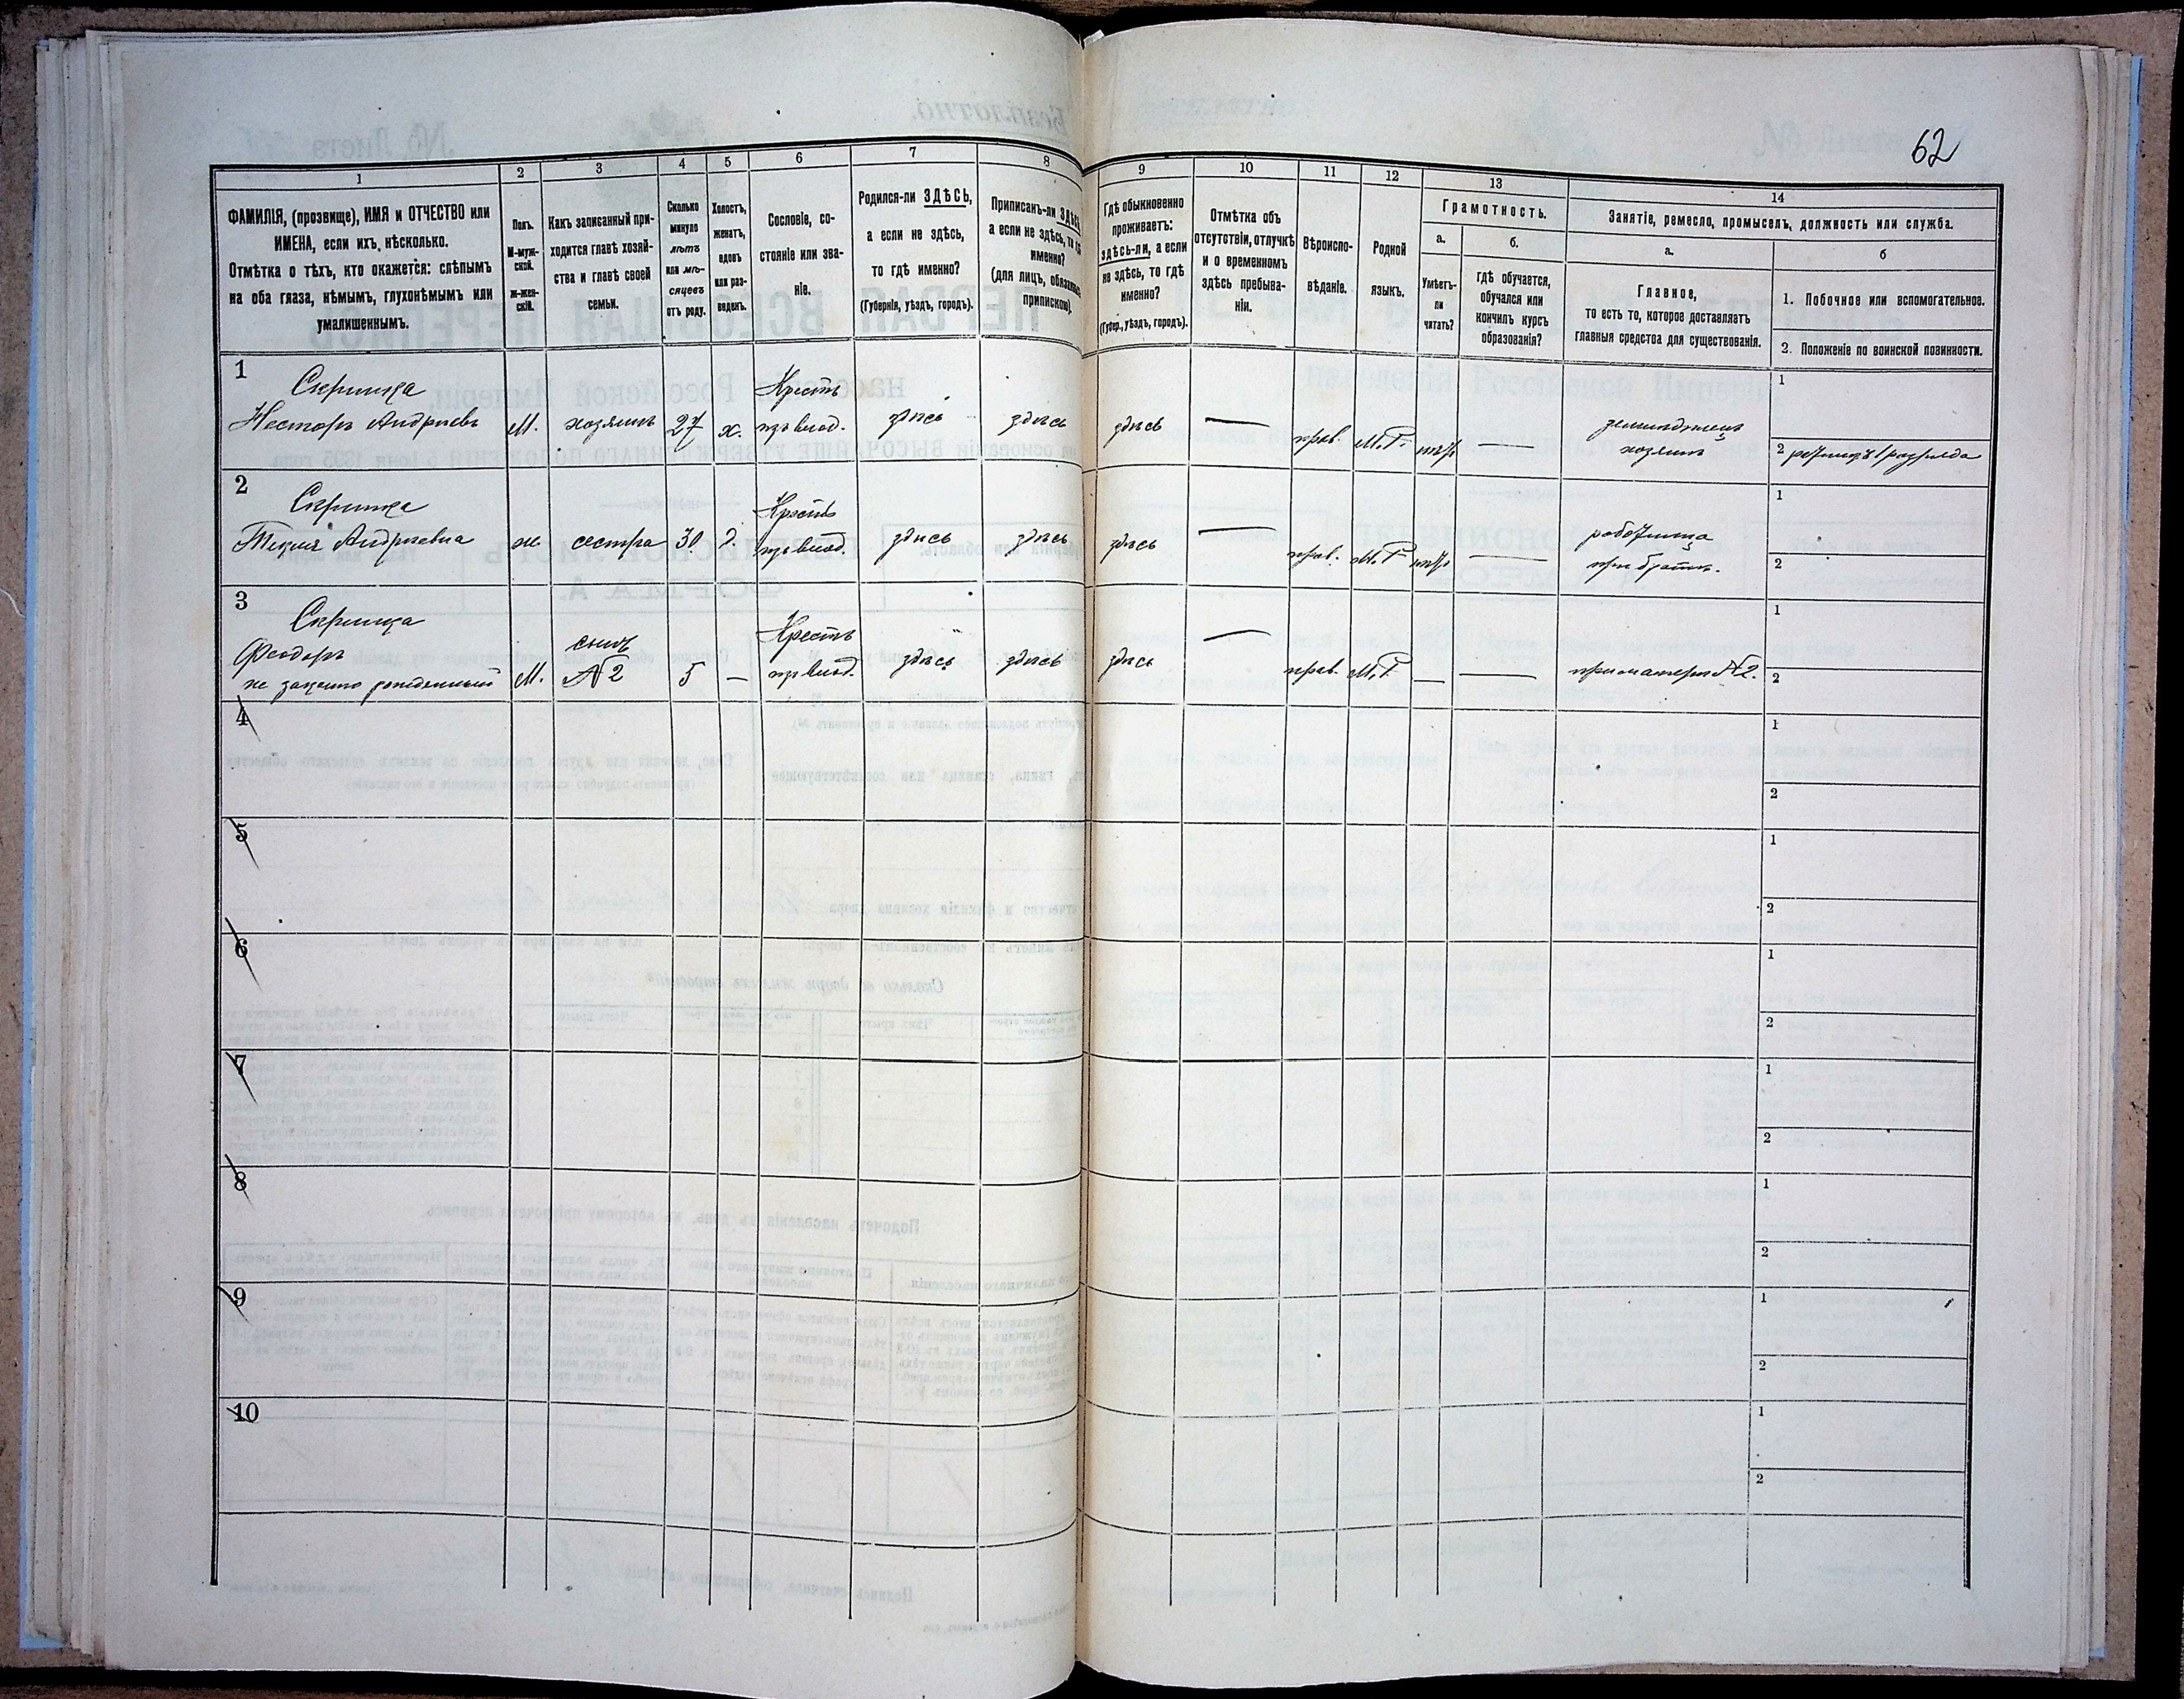 62
1
2
3
4
5
6
7
8
9
10
11
12
13
14
ФАМИЛІЯ, (прозвище), ИМЯ и ОТЧЕСТВО или
ИМЕНА, если ихъ, нѣсколько.
Отмѣтка о тѣхъ, кто окажется: слѣпымъ
на оба глаза, нѣмымъ, глухонѣмымъ или
умалишеннымъ.
Полъ.
М-муж-
ской.
ж-жен-
скій.
Какъ записанный при-
ходится главѣ хозяй-
ства и главѣ своей
семьи.
Сколько
минуло
лѣтъ
или мѣ-
сяцевъ
отъ роду.
Холостъ,
женатъ,
вдовъ
или раз-
веденъ.
Сословіе, со-
стояніе или зва-
ніе.
Родился-ли ЗДѢСЬ,
а если не здѣсь,
то гдѣ именно?
(Губернія, уѣздъ, городъ).
Приписанъ-ли ЗДѢСЬ,
а если не здѣсь, то гдѣ
именно?
(для лицъ, обязанныхъ
припискою).
Гдѣ обыкновенно
проживаетъ:
здѣсь-ли, а если
не здѣсь, то гдѣ
именно?
(Губер., уѣздъ, городъ).
Отмѣтка объ
отсутствіи, отлучкѣ
и о временномъ
здѣсь пребыва-
ніи.
Вѣроиспо-
вѣданіе.
Родной
языкъ.
Грамотность.
а.
Умѣетъ-
ли
читать?
б.
гдѣ обучается,
обучался или
кончилъ курсъ
образованія?
Занятіе, ремесло, промыселъ, должность или служба.
а.
Главное,
то есть то, которое доставляетъ
главныя средства для существованія.
б
1. Побочное или вспомогательное.
2. Положеніе по воинской повинности.
1
Скрипка
Несторъ Андріевъ
М.
хозяинъ
27
х.
Крестъ
изъ влад.
здѣсь
здѣсь
здѣсь
—
прав.
М.Р.
нѣтъ
—
земледѣлецъ
хозяинъ
1
2
2
Скрипка
Текля Андріевна
ж
сестра
30
д.
Крестъ
изъ влад.
здѣсь
здѣсь
здѣсь
—
прав.
М.Р.
нѣтъ
—
работница
при братѣ.
1
2
3
Скрипка
Феодоръ
не законно рожденный
М.
сынъ
№ 2
5
—
Крестъ
изъ влад.
здѣсь
здѣсь
здѣсь
—
прав.
М.Р.
—
—
при матери № 2.
1
2
4
1
2
5
1
2
6
1
2
7
1
2
8
1
2
9
1
2
10
1
2